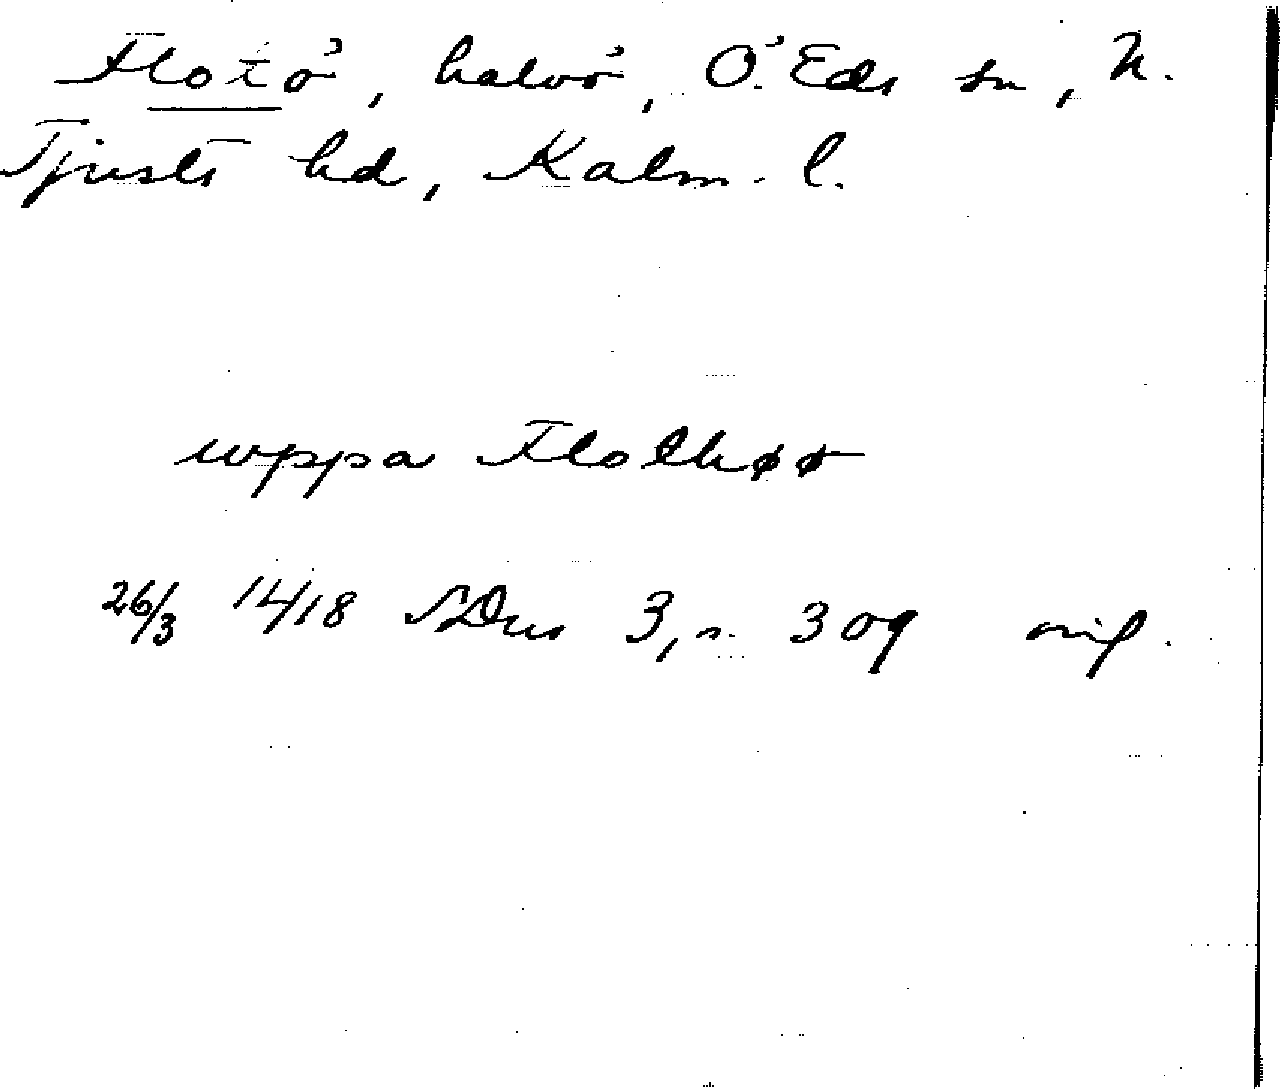 Flotö, halvö, Ö. Eds sn, N.
Tjusts hd, Kalm. l.
wppa Flothøø
26/3 1418 SDns 3, s. 309 orig.